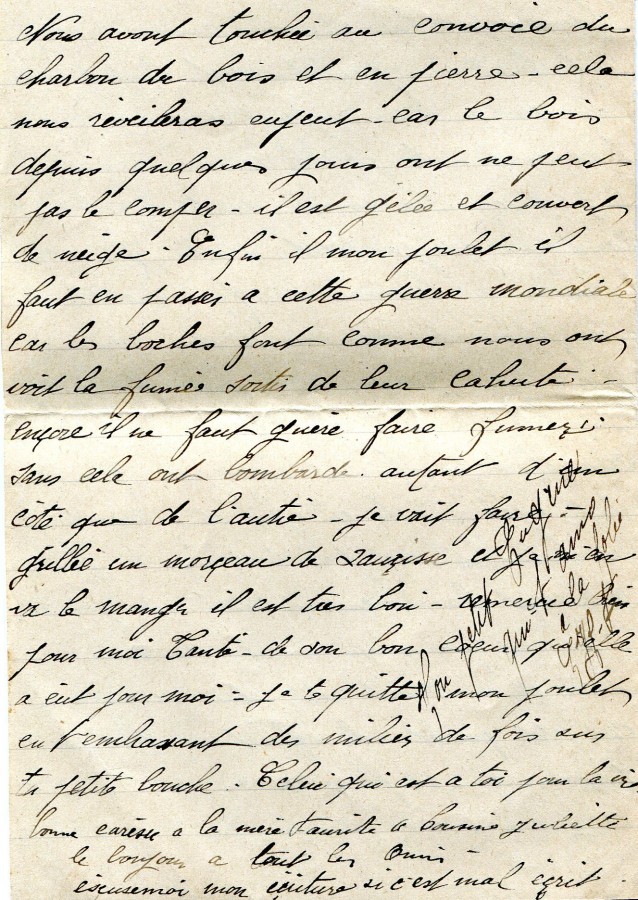 Nous avont touchée au convoie du
charbon de bois et en pierre - cela
nous réveileras
car le bois
depuis quelques jouis ont ne peut
pas le comper - il est gélée et couvert
de neige - Enfin il mon poulet il
faut en passer a cette guerre mondiale
car les boches font comme nous ont
voit la fumée sortir de leur cahute -
ençore il ne faut guère faire fumer
sans cela ont bombarde autant d'un
côté que de l'autre - je vait faire -
grillée un morçeau de sauçisse et je m'en
le manger il est tres bon - remercie bien
pour moi Tante - de son bon coeur qu'elle
a eut pour moi = je te quitte mon poulet
en t'embrassant des milier de fois sur
ta petite bouche. Celui qui est a toi pour la vie
Ton petit
qui
a la folie
bonne caresse a la mère Laurite a Cousine Juliette
le bonjour a tout les amis -
esçusemoi mon éçriture si c'est mal éçrit.